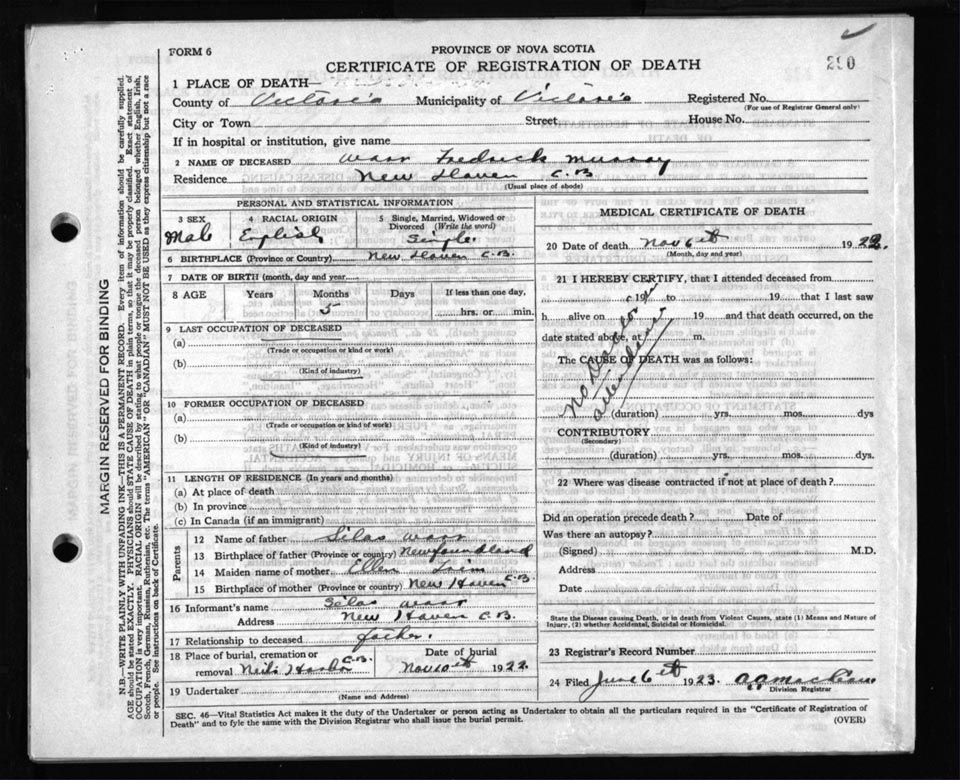 FORM 6
PROVINCE OF NOVA SCOTIA
CERTIFICATE OF REGISTRATION OF DEATH
290
1 PLACE OF DEATH
County of Victoria Municipality of Victoria Registered No.
(For use of Registrar General only)
City or Town Street House No.
If in hospital or institution, give name
2 NAME OF DECEASED Warr Fredrick Murray
Residence New Haven C.B
(Usual place of abode)
PERSONAL AND STATISTICAL INFORMATION
3 SEX Male
4 RACIAL ORIGIN English
5 Single, Married, Widowed or Divorced (Write the word) Single.
6 BIRTHPLACE (Province or Country) New Haven C.B.
7 DATE OF BIRTH (month, day and year)
8 AGE Years Months Days If less than one day,
5 hrs. or min.
9 LAST OCCUPATION OF DECEASED
(a)
(Trade or occupation or kind or work)
(b)
(Kind of industry)
10 FORMER OCCUPATION OF DECEASED
(a)
(Trade or occupation or kind of work)
(b)
(Kind of industry)
11 LENGTH OF RESIDENCE (In years and months)
(a) At place of death
(b) In province
(c) In Canada (if an immigrant)
Parents
12 Name of father Silas Warr
13 Birthplace of father (Province or country) Newfoundland
14 Maiden name of mother Ellen
15 Birthplace of mother (Province or country) New Haven C.B.
16 Informant's name Silas Warr
Address New Haven C.B.
17 Relationship to deceased father.
18 Place of burial, cremation or removal Neils Harbor C.B.
Date of burial Nov 10th 1922
19 Undertaker
(Name and Address)
MEDICAL CERTIFICATE OF DEATH
20 Date of death Nov 6th 1922.
(Month, day and year)
21 I HEREBY CERTIFY, that I attended deceased from
19 to 19 that I last saw
h alive on 19 and that death occurred, on the
date stated above, at m.
The CAUSE OF DEATH was as follows:
No Doctor in attendance
(duration) yrs. mos. dys
CONTRIBUTORY
(Secondary)
(duration) yrs. mos. dys.
22 Where was disease contracted if not at place of death?
Did an operation precede death? Date of
Was there an autopsy?
(Signed) M.D.
Address
Date
State the Disease causing Death, or in death from Violent Causes, state (1) Means and Nature of
Injury, (2) whether Accidental, Suicidal or Homicidal.
23 Registrar's Record Number
24 Filed June 6th 1923.
Division Registrar
SEC. 46—Vital Statistics Act makes it the duty of the Undertaker or person acting as Undertaker to obtain all the particulars required in the "Certificate of Registration of
Death" and to fyle the same with the Division Registrar who shall issue the burial permit.
(OVER)
MARGIN RESERVED FOR BINDING
N.B.—WRITE PLAINLY WITH UNFADING INK—THIS IS A PERMANENT RECORD. Every item of information should be carefully supplied.
AGE should be stated EXACTLY. PHYSICIANS should STATE CAUSE OF DEATH in plain terms, so that it may be properly classified. Exact statement of
OCCUPATION is very important. RACIAL ORIGIN will be described by stating to what people or tongue the deceased person belonged whether English, Irish,
Scotch, French, German, Russian, Ruthenian, etc. The terms "AMERICAN" OR "CANADIAN" MUST NOT BE USED as they express citizenship but not a race
or people. See instructions on back of Certificate.